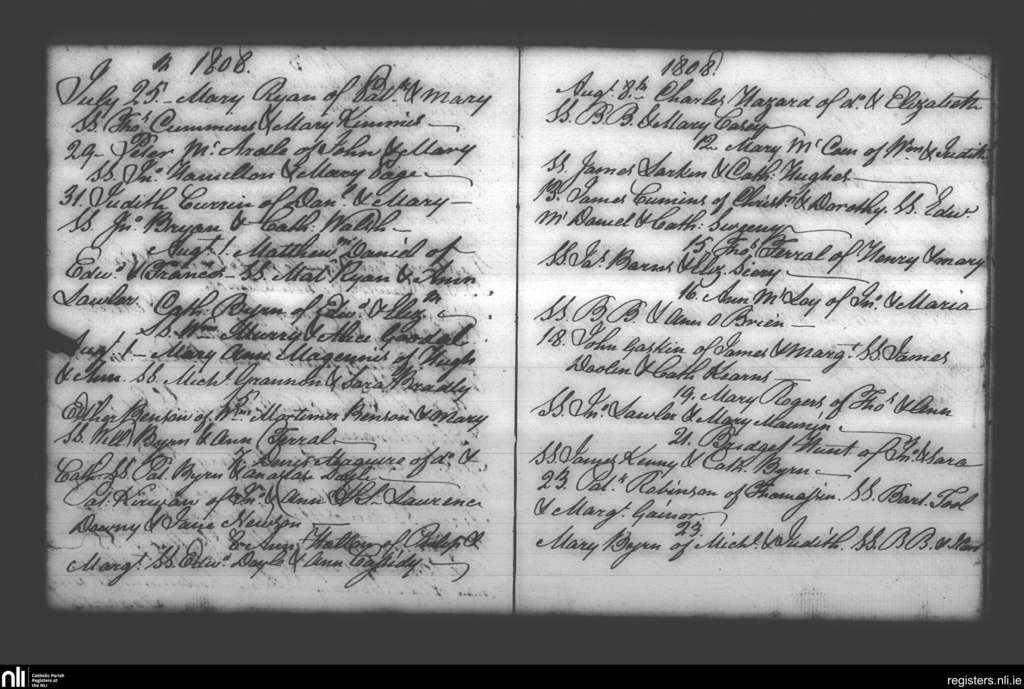 1808.
July 25. Mary Ryan of Patk. & Mary
SS. Thos. Cummins & Mary Kinnies
29 - Peter Mc. Ardle of John & Mary
SS. Jno. Hamilton & Mary Page
31. Judith Currin of Danl. & Mary
SS. Jno. Bryan & Cath. Walsh
Augt. 1. Matthew Mc. Daniel of
Edwd. & Frances - SS. Mat Ryan & Ann
Lawler. Cath. Byrn of Edwd. & Eliz.
SS. Wm. & Alice
Augt. 1 - Mary Ann Magennis of Hugh
& Ann. SS. Michl. Grannon & Sara Bradley
Esther Benson of Wm. Mortimor Benson & Mary
SS. Will Byrn & Ann Ferral
7. Denis Maguire of do. &
Cath. SS. Pat. Byrn & Anastas Doyle
Pat. Kirwan of Jno. & Ann SS. Laurence
Downy & Jane Newson
8 Ann of Philip &
Margt. SS. Edwd. Doyle & Ann Cassidy.
1808.
Augt. 8th Charles Hazard of do. & Elizabeth
SS. B B. & Mary Casey
12 Mary Mc Cam of Wm. & Judith
SS. James Larkin & Cath. Hughes
13. James Cumins of Christr. & Dorothy. SS. Edwd.
Mc Daniel & Cath. Sweeny
15. Thos. Ferral of Henry & Mary
SS Jas. Barns & Eliz.
16. Ann Mc Loy of Jno. & Maria
SS. B B. & Ann O Brien
18. John Gaskin of James & Margt. SS James
Doolin & Cath Kearns
19. Mary Rogers of Thos. & Ann
SS. Jno. Lawler & Mary
21. Bridget Hunt of Jno. & Sara
SS James Kenny & Cath. Byrn
23. Patk. Robinson of Thomasin. SS. Bart. Tool
& Margt. Gainor
23
Mary Byrn of Michl. & Judith. SS. B B. &
nli
Catholic Parish
Registers at
the NLI
registers.nli.ie